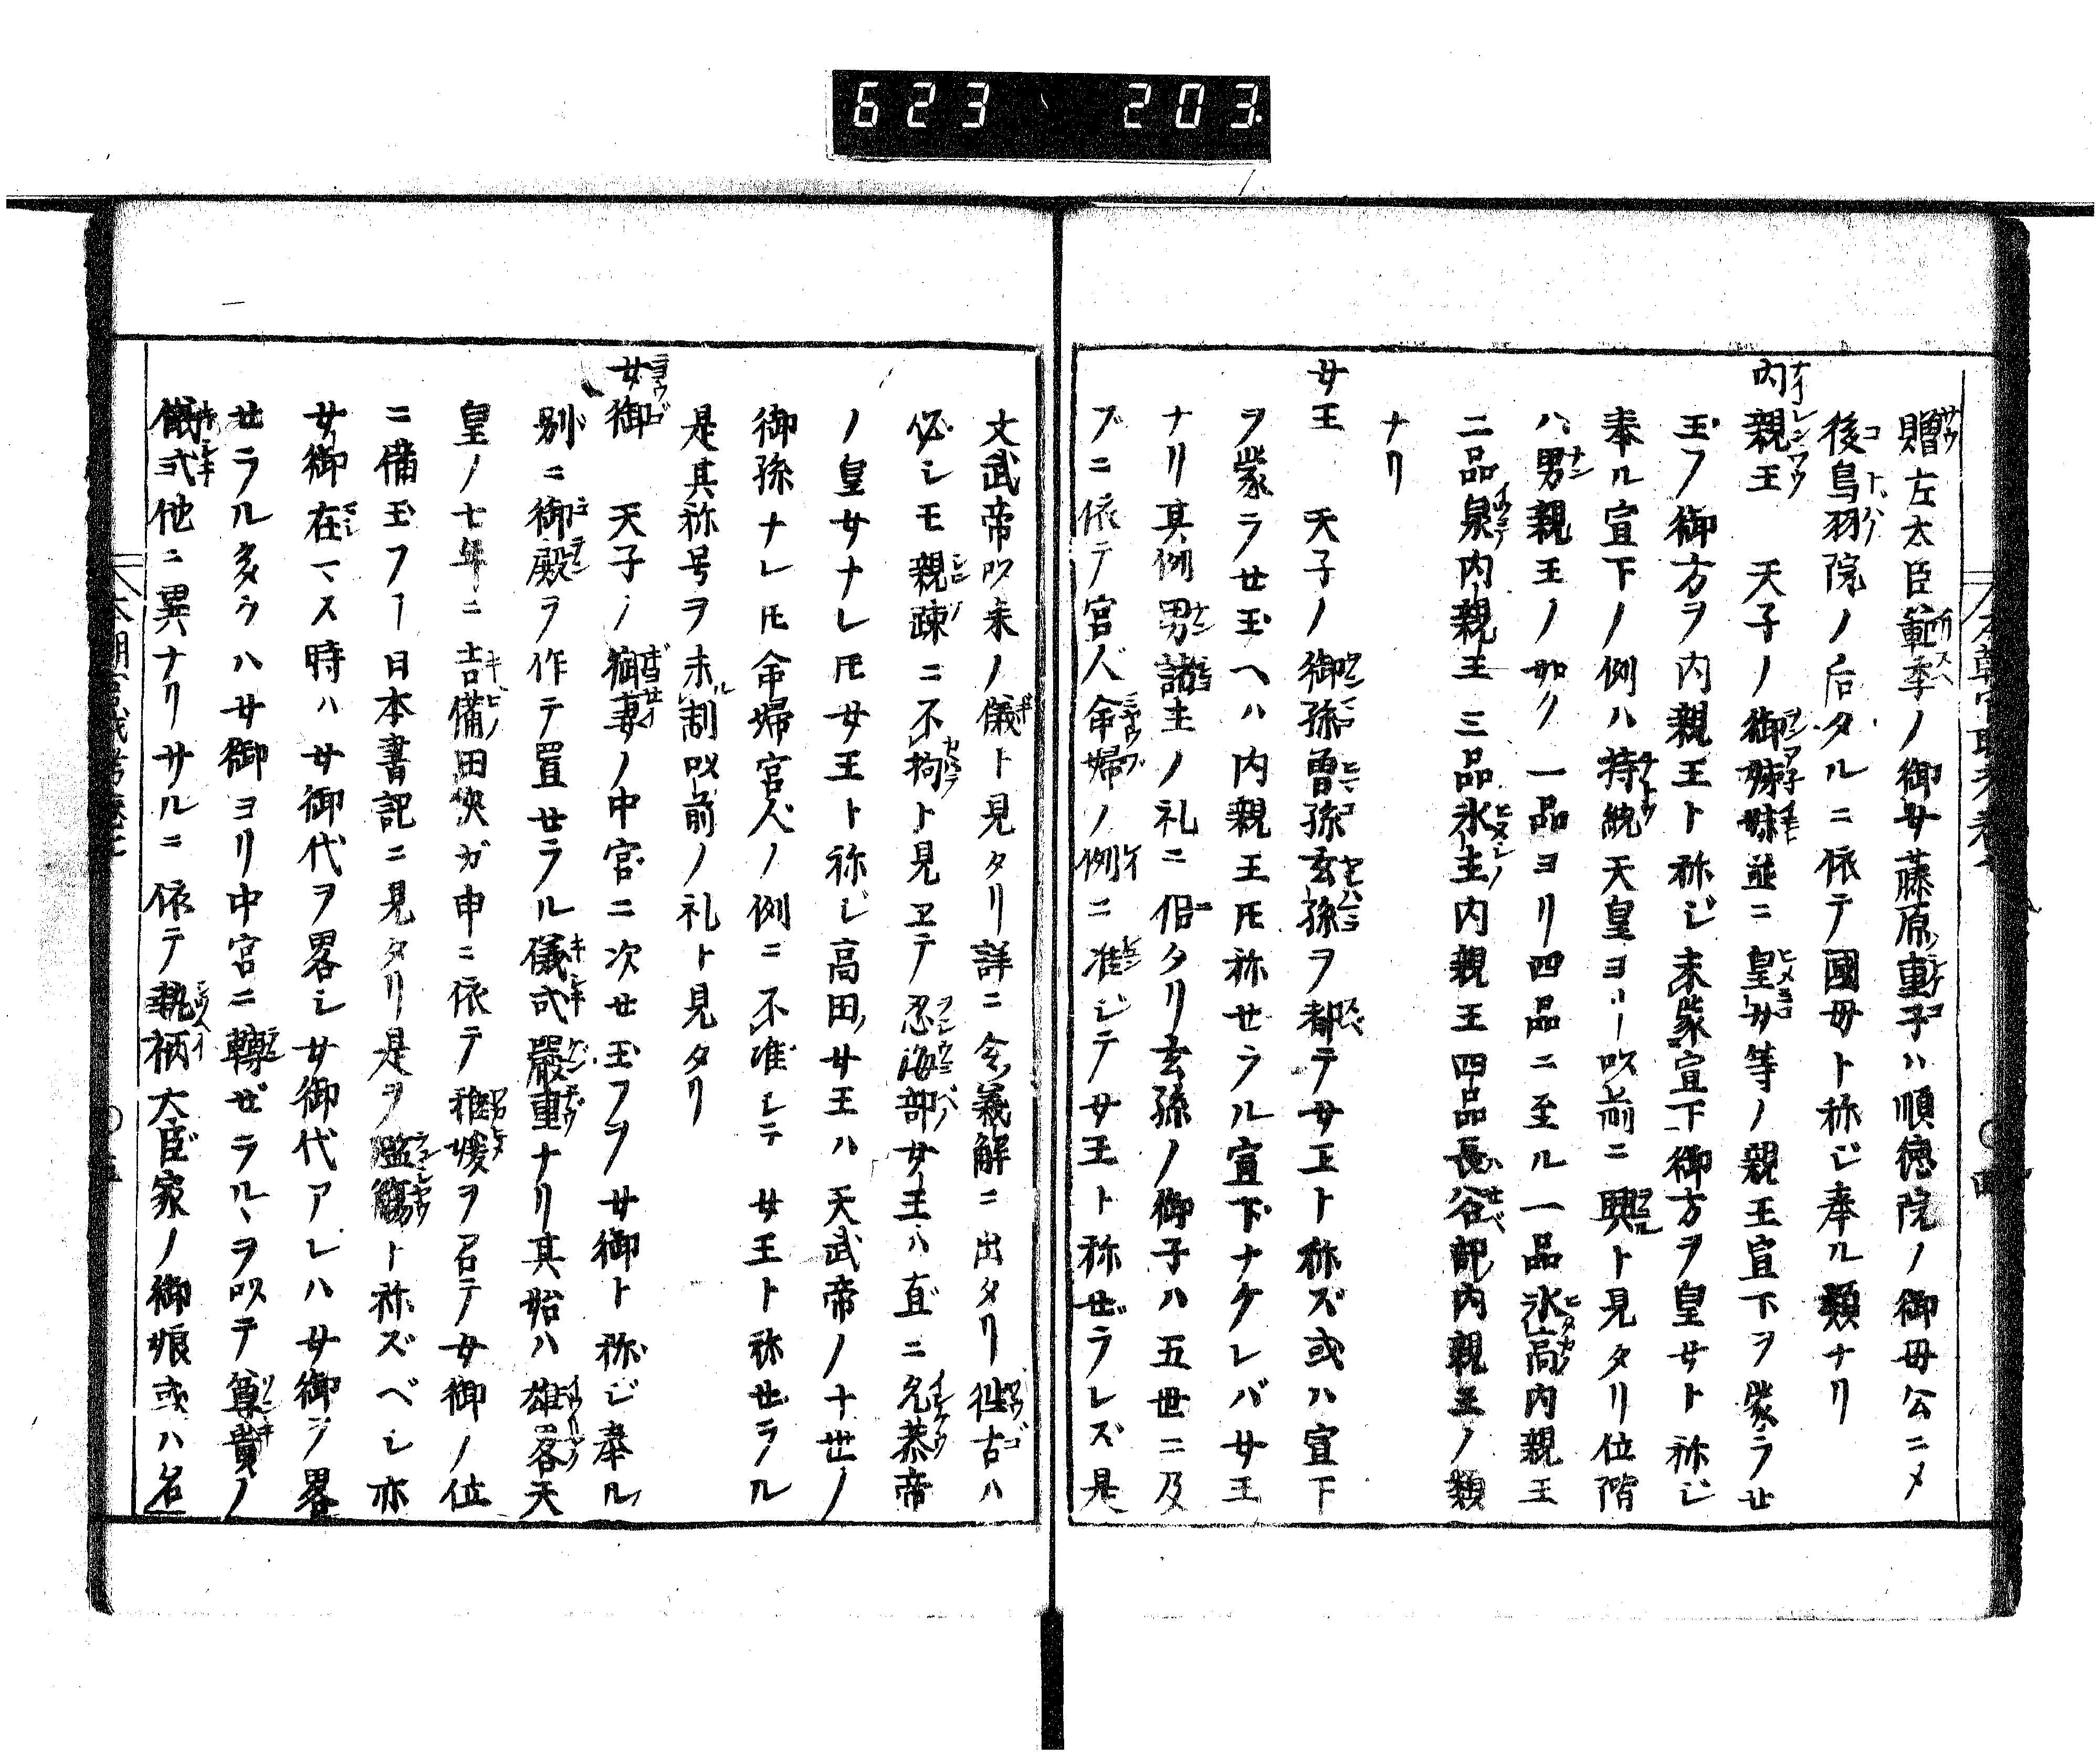 623 203
贈左太臣範季ノ御女藤原重子ハ順徳院ノ御母公ニメ
後鳥羽院ノ后タルニ依テ國母ト称ジ奉ル類ナリ
内親王 天子ノ御姉妹並ニ皇女等ノ親王宣下ヲ蒙ラせ
玉フ御方ヲ内親王ト称ジ未蒙宣下御方ヲ皇女ト称ジ
奉ル宣下ノ例ハ持統天皇ヨリ以前ニ興ト見タリ位階
ハ男親王ノ如ク一品ヨリ四品ニ至ル一品氷高内親王
二品泉内親王三品氷主内親王四品長谷部内親王ノ類
ナリ
女王 天子ノ御孫曽孫玄孫ヲ都テ女王ト称ズ或ハ宣下
ヲ蒙ラせ玉ヘハ内親王𪜈称せラル宣下ナケレバ女王
ナリ其例男諸王ノ礼ニ侶タリ玄孫ノ御子ハ五世ニ及
ブニ依テ宮人命婦ノ例ニ准ジテ女王ト称ぜラレズ是
文武帝以来ノ儀ト見タリ詳ニ令義解ニ出タリ往古ハ
必シモ親疎ニ不拘ト見ヱテ忍海部女王ハ直ニ允恭帝
ノ皇女ナレ𪜈女王ト称シ高田女王ハ天武帝ノ十世ノ
御孫ナレ𪜈命婦宮人ノ例ニ不准シテ女王ト称せラル
是其称号ヲ未制以前ノ礼ト見タリ
女御 天子ノ御妻ノ中宮ニ次せ玉フヲ女御ト称ジ奉ル
別ニ御殿ヲ作テ置せラル儀式嚴重ナリ其始ハ雄畧天
皇ノ七年ニ吉備田狹ガ申ニ依テ稚媛ヲ召テ女御ノ位
ニ備玉フ𠃍日本書記ニ見タリ是ヲ濫觴ト称ズベシ亦
女御在マス時ハ女御代ヲ畧シ女御代アレハ女御ヲ畧
せラル多クハ女御ヨリ中宮ニ轉ぜラルヽヲ以テ尊貴ノ
儀式他ニ異ナリサルニ依テ執柄大臣家ノ御娘或ハ若